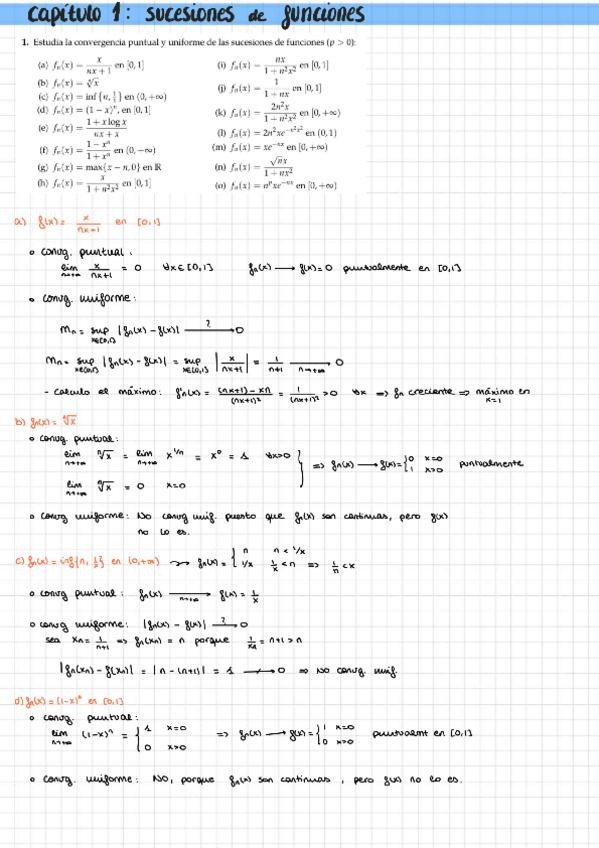 Capítulo 1: sucesiones de funciones
1. Estudia la convergencia puntual y uniforme de las sucesiones de funciones (p > 0):
(a) fₙ(x) = x/(nx + 1) en [0, 1]
(b) fₙ(x) = ⁿ√x
(c) fₙ(x) = inf {n, 1/x} en (0, +∞)
(d) fₙ(x) = (1 − x)ⁿ, en [0, 1]
(e) fₙ(x) = (1 + x log x)/(nx + x)
(f) fₙ(x) = (1 − xⁿ)/(1 + xⁿ) en (0, −∞)
(g) fₙ(x) = max{x − n, 0} en ℝ
(h) fₙ(x) = x/(1 + n²x²) en [0, 1]
(i) fₙ(x) = nx/(1 + n²x²) en [0, 1]
(j) fₙ(x) = 1/(1 + nx) en [0, 1]
(k) fₙ(x) = 2n²x/(1 + n²x²) en [0, +∞)
(l) fₙ(x) = 2n²xe^(−x²x²) en (0, 1)
(m) fₙ(x) = xe^(−nx) en [0, +∞)
(n) fₙ(x) = √nx/(1 + nx²)
(o) fₙ(x) = nᵖxe^(−nx) en [0, +∞)
a) f(x) = x/(nx+1) en [0,1]
○ convg. puntual:
lim n→+∞ x/(nx+1) = 0 ∀x∈[0,1] fₙ(x) ⟶ f(x)=0 puntualmente en [0,1]
○ convg. uniforme:
Mₙ = sup x∈[0,1] |fₙ(x) − f(x)| ⟶? 0
Mₙ = sup x∈[0,1] |fₙ(x) − f(x)| = sup x∈[0,1] |x/(nx+1)| = 1/(n+1) ⟶ n→+∞ 0
- calculo el máximo: f'ₙ(x) = ((nx+1) − xn)/(nx+1)² = 1/(nx+1)² > 0 ∀x ⇒ fₙ creciente ⇒ máximo en x=1
b) fₙ(x) = ⁿ√x
○ convg. puntual:
lim n→+∞ ⁿ√x = lim n→+∞ x^(1/n) = x⁰ = 1 ∀x>0
lim n→+∞ ⁿ√x = 0 x=0
} ⇒ fₙ(x) ⟶ f(x) = { 0 x=0
1 x>0 puntualmente
○ convg uniforme: No convg unif. puesto que fₙ(x) son continuas, pero f(x)
no lo es.
c) fₙ(x) = inf{n, 1/x} en (0,+∞) ⇝ fₙ(x) = { n n < 1/x
1/x 1/x < n ⇒ 1/n < x
○ convg puntual: fₙ(x) ⟶ n→+∞ f(x) = 1/x
○ convg uniforme: |fₙ(x) − f(x)| ⟶? 0
sea xₙ = 1/(n+1) ⇒ fₙ(xₙ) = n porque 1/xₙ = n+1 > n
|fₙ(xₙ) − f(xₙ)| = |n − (n+1)| = 1 ⟶ 0 ⇒ No convg unif.
d) fₙ(x) = (1−x)ⁿ en [0,1]
○ convg. puntual:
lim n→+∞ (1−x)ⁿ = { 1 x=0
0 x>0 ⇒ fₙ(x) ⟶ f(x) = { 1 x=0
0 x>0 puntualmt en [0,1]
○ convg. uniforme: NO, porque fₙ(x) son continuas, pero f(x) no lo es.